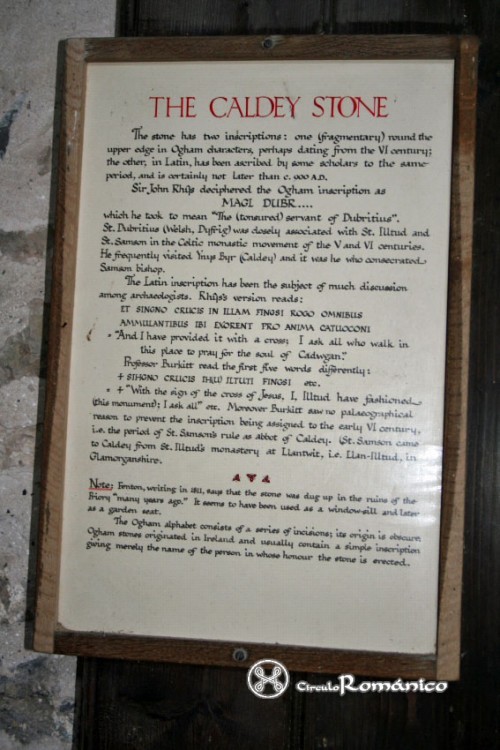 THE CALDEY STONE
The stone has two inscriptions: one (fragmentary) round the
upper edge in Ogham characters, perhaps dating from the VI century;
the other, in Latin, has been ascribed by some scholars to the same
period, and is certainly not later than c. 900 A.D.
Sir John Rhŷs deciphered the Ogham inscription as
MAGL DUBR....
which he took to mean "The (tonsured) servant of Dubritius".
St. Dubritius (Welsh, Dyfrig) was closely associated with St. Illtud and
St. Samson in the Celtic monastic movement of the V and VI centuries.
He frequently visited Ynys Byr (Caldey) and it was he who consecrated
Samson bishop.
The Latin inscription has been the subject of much discussion
among archaeologists. Rhŷs's version reads:
ET SINGNO CRUCIS IN ILLAM FINGSI ROGO OMNIBUS
AMMULANTIBUS IBI EXORENT PRO ANIMA CATUOCONI
"And I have provided it with a cross; I ask all who walk in
this place to pray for the soul of Cadwgan."
Professor Burkitt read the first five words differently:
+ SIHGNO CRUCIS IH(U) ILTUTI FINGSI etc.
+ "With the sign of the cross of Jesus, I, Illtud have fashioned
(this monument); I ask all" etc. Moreover Burkitt saw no palaeographical
reason to prevent the inscription being assigned to the early VI century,
i.e. the period of St. Samson's rule as abbot of Caldey. (St. Samson came
to Caldey from St. Illtud's monastery at Llantwit, i.e. Llan-Illtud, in
Glamorganshire.
Note: Fenton, writing in 1811, says that the stone was dug up in the ruins of the
Priory "many years ago." It seems to have been used as a window-sill and later
as a garden seat.
The Ogham alphabet consists of a series of incisions; its origin is obscure.
Ogham stones originated in Ireland and usually contain a simple inscription
giving merely the name of the person in whose honour the stone is erected.
Círculo Románico